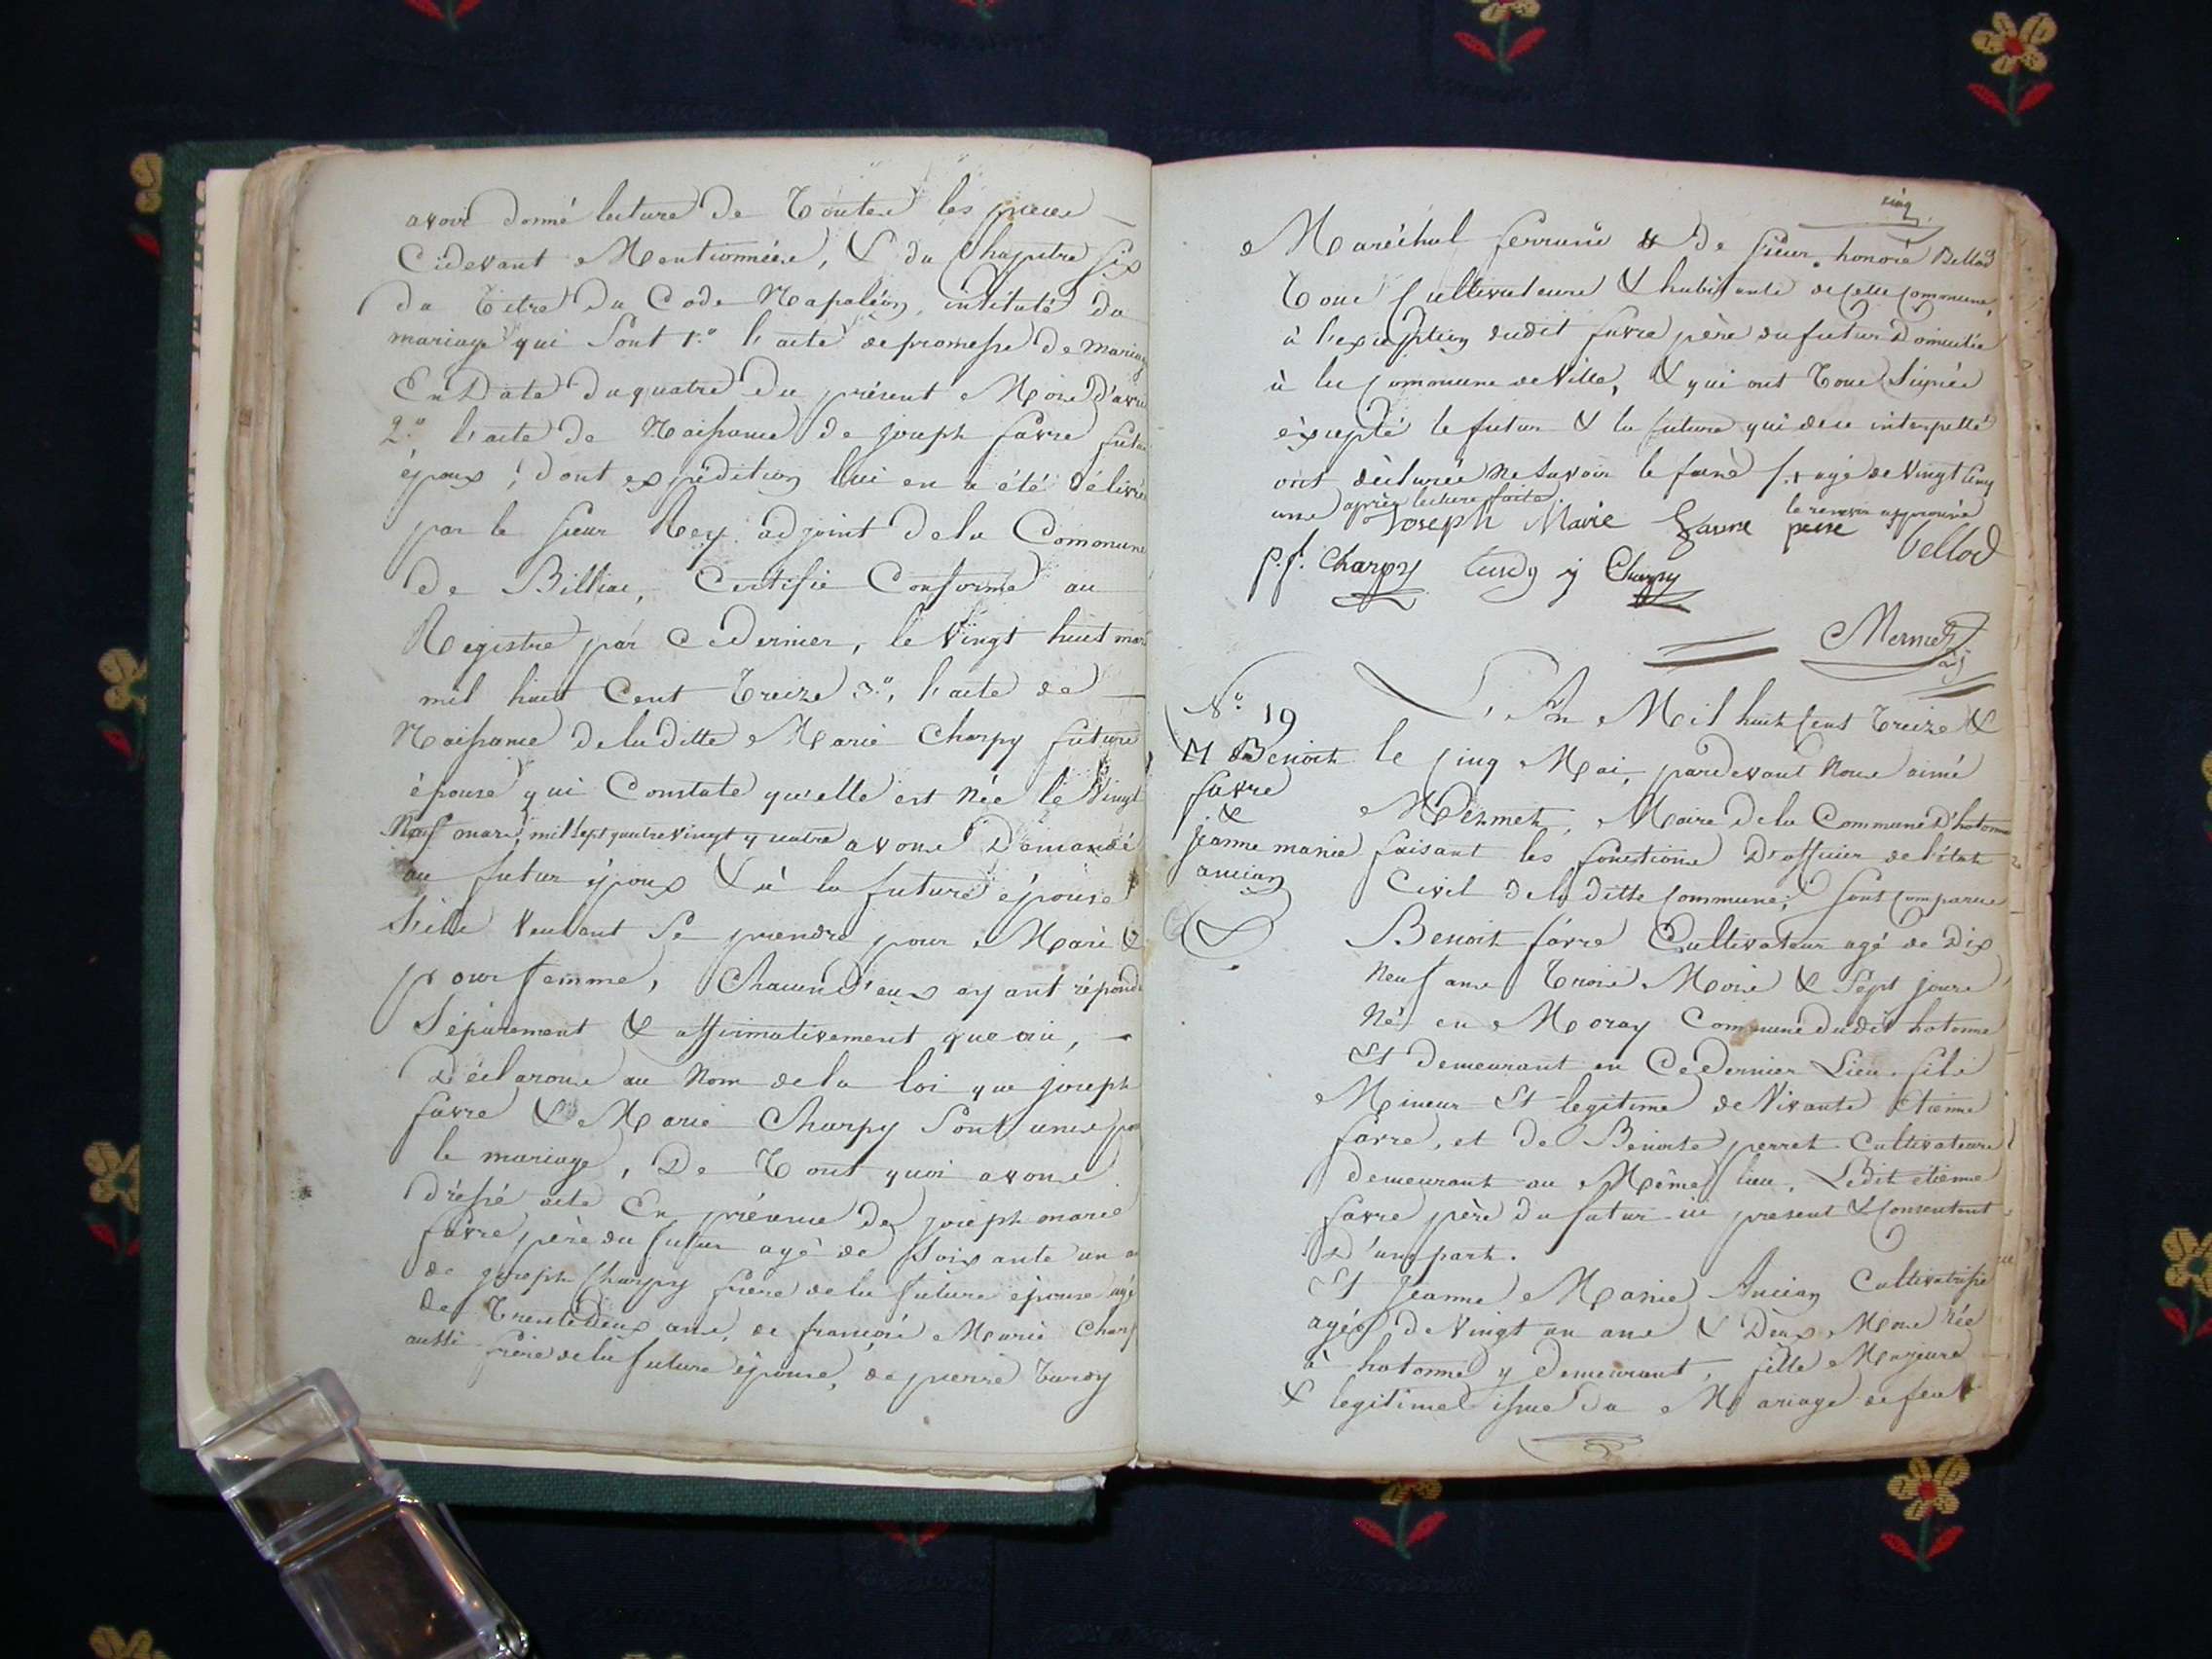 avoir donné lecture de Toutes les pieces
Cidevant Mentionnées, & du Chapitre six
du Titre du Code Napoléon, intitulé du
mariage qui Sont 1.º l'acte de promesse de mariag
En Date du quatre du présent Mois d'avri
2.º l'acte de Naissance de joseph favre futur
époux, dont expédition lui en a été délivré
par le sieur Rey adjoint de la Commune
de Billiac, Certifié Conforme au
Registre par ce dernier, le Vingt huit mars
mil huit Cent Treize 3.º, l'acte de
Naissance de laditte Marie Charpy future
épouse qui Constate qu'elle est Née le Vingt
Neuf mars, mil sept quatre Vingt quatre avons Demandé
au futur époux & à la future épouse
s'ils veulent Se prendre pour Mari &
pour femme, Chacun d'eux ayant répondu
Séparement & affirmativement que oui,
Déclarons au Nom de la loi que joseph
favre & Marie Charpy Sont unis par
le mariage, De Tout quoi avons
dressé acte En présence de joseph marie
favre père du futur agé de Soixante un a
de joseph Charpy frère de la future épouse agé
de Trente deux ans, de françois Marie Charp
aussi frère de la future épouse, de pierre Tardy
cinq
Maréchal ferrant & de sieur honoré Bellod
Tous Cultivateurs & habitants de cette Commune,
à l'exception dudit favre père du futur Domicilié
à la Commune de Ville, & qui ont Tous Signés
éxcepté le futur & la future qui de ce interpellé
ont déclarés Ne Savoir le faire /.+ agé de Vingt Cinq
ans après lecture faite le renvoi approuvé
Joseph Marie Favre pere Bellod
p.f. Charpy Tardy Charpy
Mermet
Nº 19
M Benoit
favre
&
jeanne marie
ancian
L'An Mil huit Cent Treize &
le Cinq Mai, pardevant Nous aimé
Mermet, Maire de la Commune D'hotonne
faisant les fonctions D'officier de l'état
Civil de laditte Commune, Sont Comparus
Benoit favre Cultivateur agé de Dix
Neuf ans Trois Mois & Sept jours
Né en Moray Commune dudit hotonne
Et demeurant en Ce dernier Lieu fils
Mineur Et legitime de Vivants étienne
favre, et de Benoite perret Cultivateurs
demeurant au Même lieu, Ledit étienne
favre père du futur ici present & Consentent
D'une part.
Et Jeanne Marie Ancian Cultivatrisse
agée de Vingt un ans & Deux Mois née
à hotonne y demeurant, fille Majeure
& legitime issue du Mariage de feu